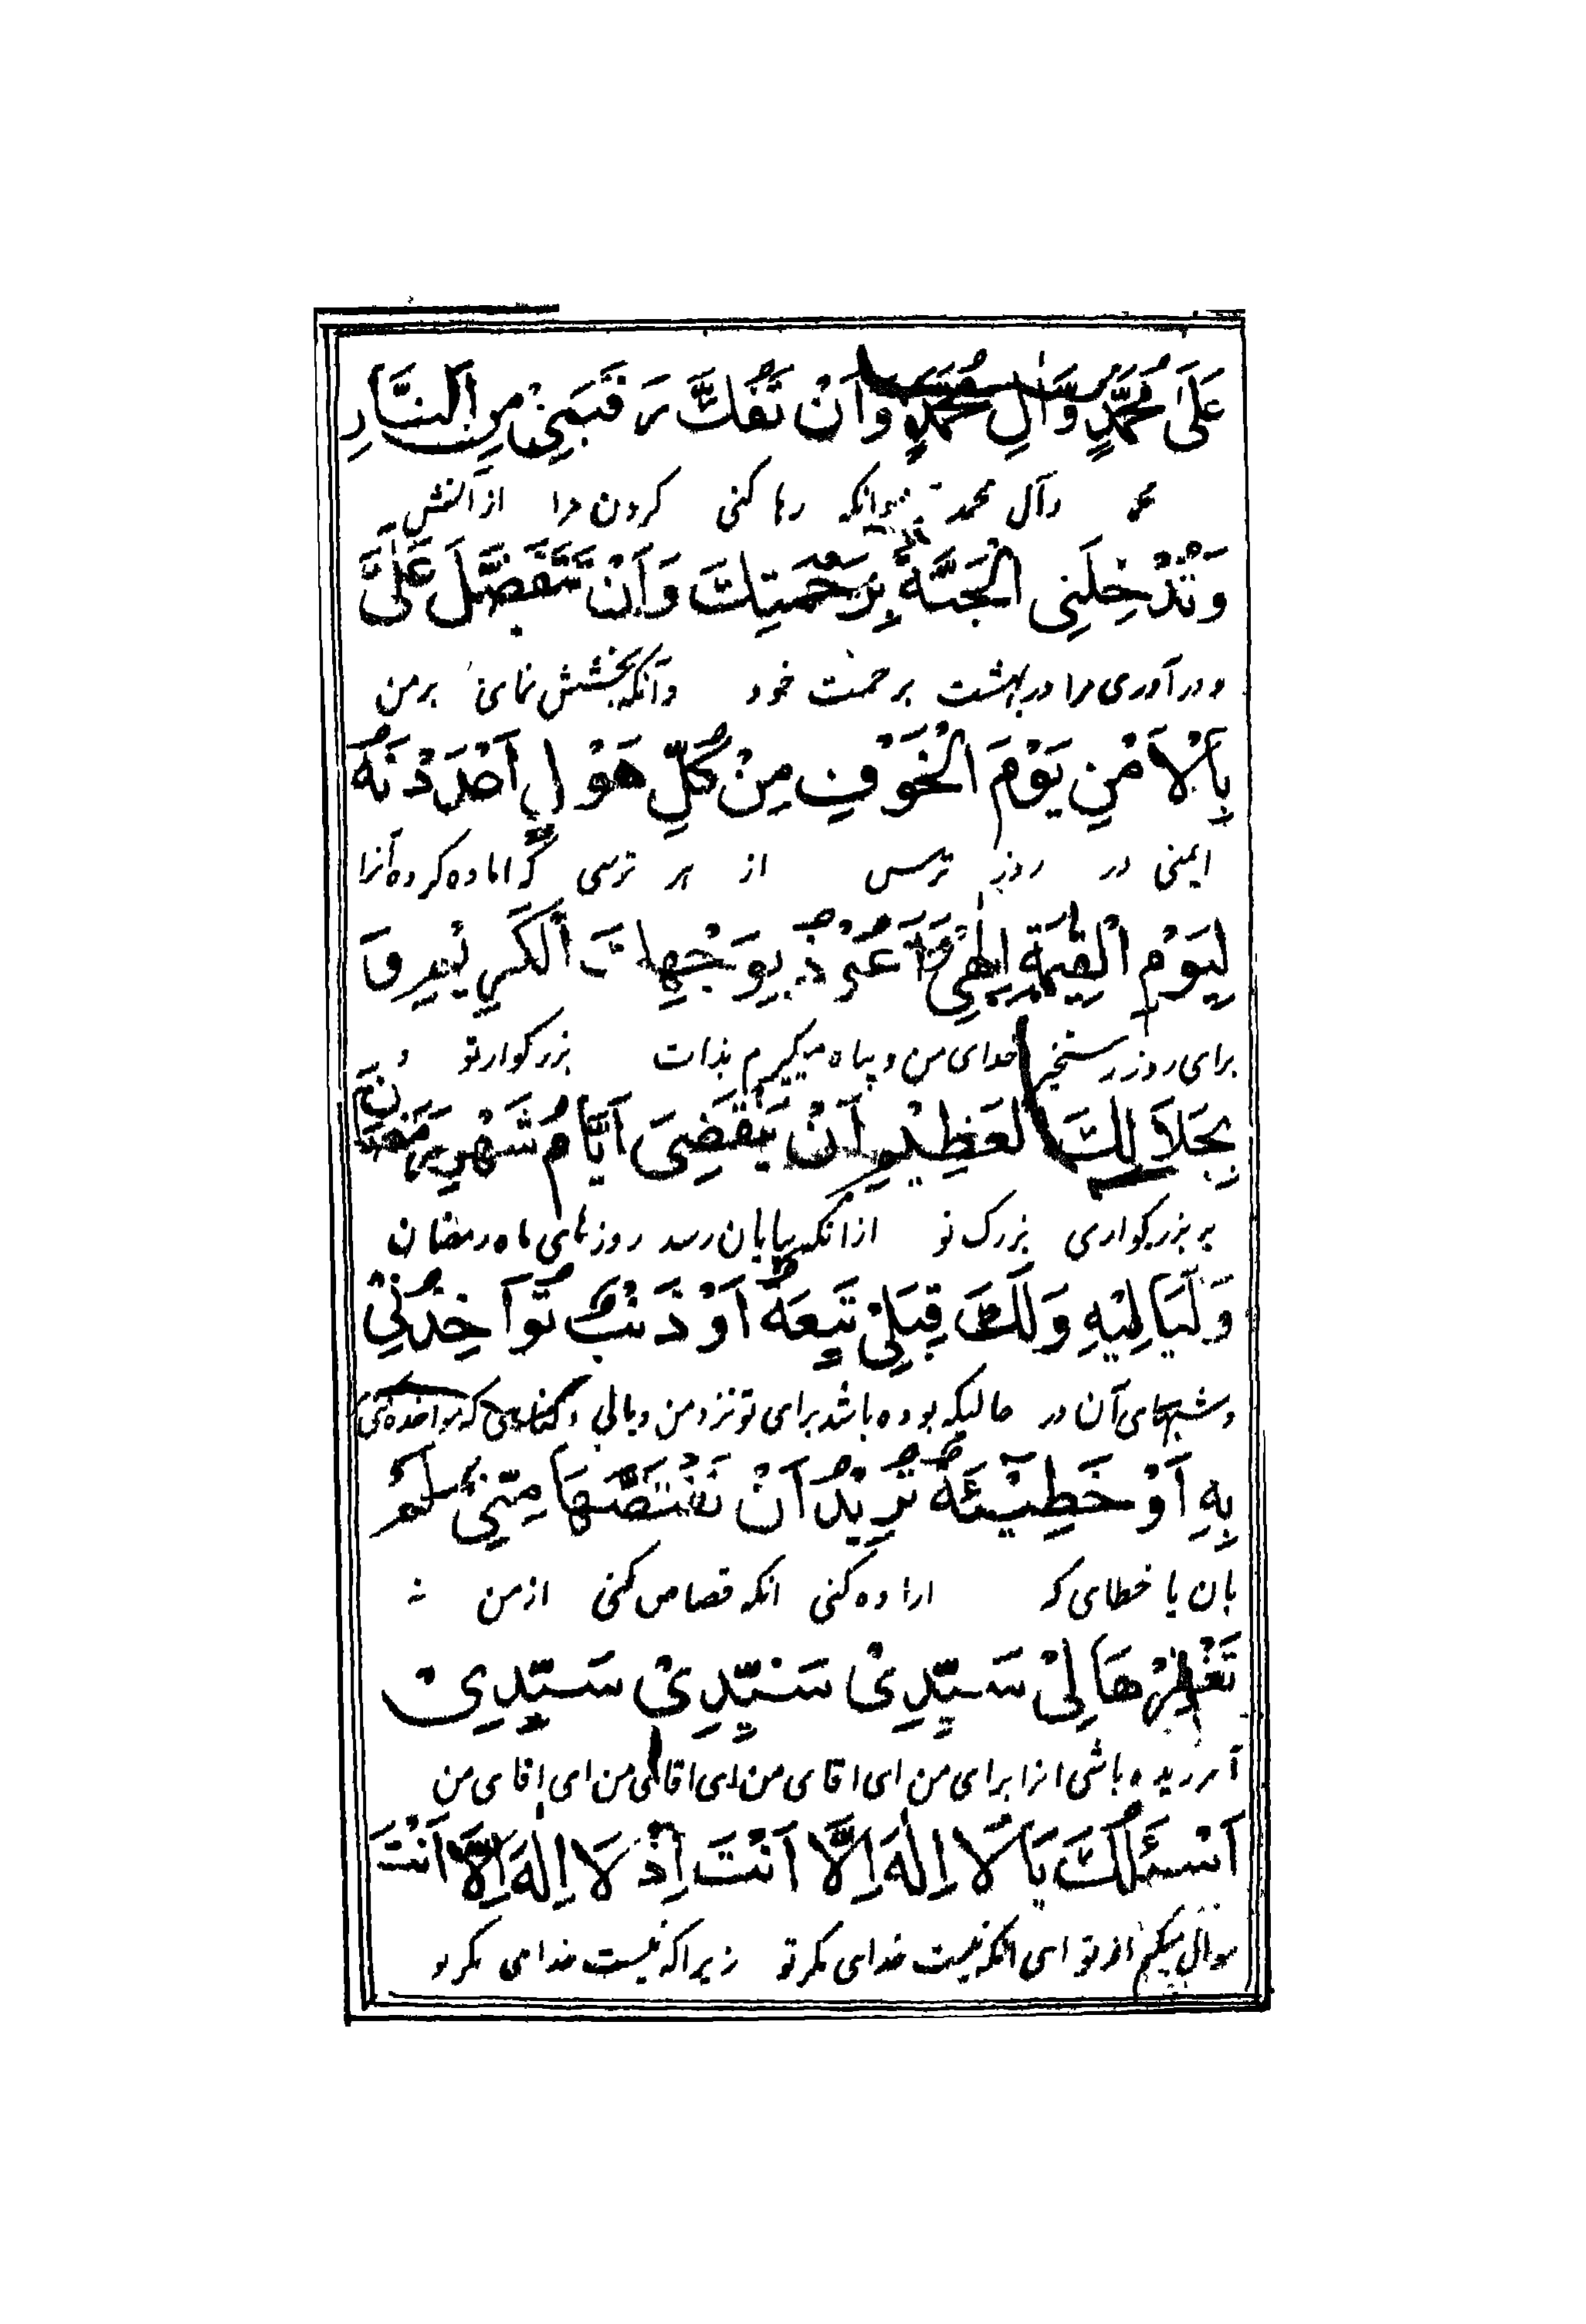 عَلَىٰ مُحَمَّدٍ وَّاٰلِ مُحَمَّدٍ وَاَنْ تَفُكَّ رَقَبَتِيْ مِنَ النَّارِ
محمد وآل محمد وانکه رها کنی کردن مرا از آتش
وَتُدْخِلَنِي الْجَنَّةَ بِرَحْمَتِكَ وَاَنْ تَتَفَضَّلَ عَلَيَّ
و در آوری مرا در بهشت برحمت خود وآنکه بخشش نمائ برمن
بِالْاَمْنِ يَوْمَ الْخَوْفِ مِنْ كُلِّ هَوْلٍ اَعْدَدْتَهُ
ایمنی در روز ترس از هر ترسی که اماده کرده آنرا
لِيَوْمِ الْقِيٰمَةِ اِلٰهِيْ وَاَعُوْذُ بِوَجْهِكَ الْكَرِيْمِ وَ
برای روز رستخیز خدای من و پناه میگیرم بذات بزرکوار تو و
بِجَلَالِكَ الْعَظِيْمِ اَنْ يَنْقَضِيَ اَيَّامُ شَهْرِ رَمَضَانَ
به بزرکواری بزرک تو ازانکه بپایان رسد روزهای ماه رمضان
وَلَيَالِيْهِ وَلَكَ قِبَلِيْ تَبِعَةٌ اَوْ ذَنْبٌ تُوَاٰخِذُنِيْ
وشبهای آن در حالیکه بوده باشد برای تو نزد من وبالی و کناهی که مواخذه کنی
بِهِ اَوْ خَطِيْئَةٌ تُرِيْدُ اَنْ تَقْتَصَّهَا مِنِّيْ لَمْ
بان یا خطای که اراده کنی انکه قصاص کنی ازمن نه
تَغْفِرْهَا لِيْ سَيِّدِيْ سَيِّدِيْ سَيِّدِيْ
آمرزیده باشی انرا برای من ای اقای من ای اقای من ای اقای من
اَسْئَلُكَ يَا لَا اِلٰهَ اِلَّا اَنْتَ اِذْ لَا اِلٰهَ اِلَّا اَنْتَ
سوال میکنم از تو ای انکه نیست خدای مکر تو زیرا که نیست خدای مکر تو